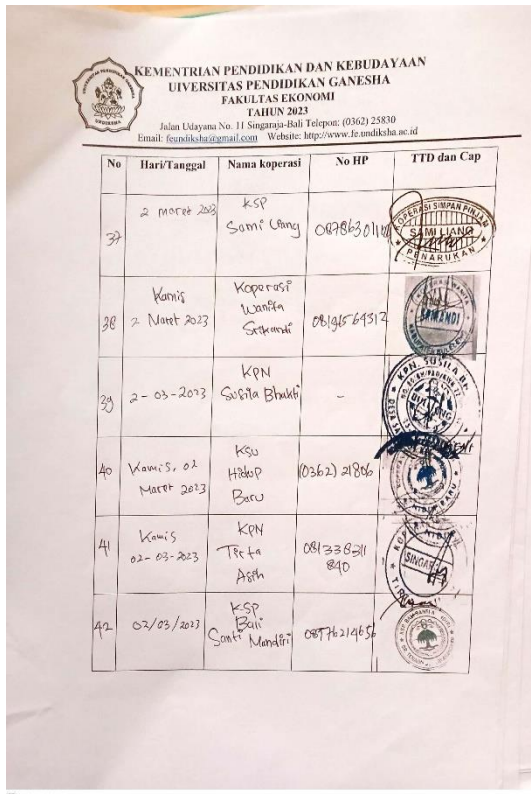 KEMENTRIAN PENDIDIKAN DAN KEBUDAYAAN
UIVERSITAS PENDIDIKAN GANESHA
FAKULTAS EKONOMI
TAHUN 2023
Jalan Udayana No. 11 Singaraja-Bali Telepon: (0362) 25830
Email: feundiksha@gmail.com Website: http://www.fe.undiksha.ac.id
No Hari/Tanggal Nama koperasi No HP TTD dan Cap
37 2 maret 2023 KSP Sami Liang
KOPERASI SIMPAN PINJAM
SAMI LIANG
PENARUKAN
38 Kamis 2 Maret 2023 Koperasi Wanita Srikandi 08196564312
39 2-03-2023 KPN Susila Bhakti -
KPN SUSILA
40 Kamis, 02 Maret 2023 KSU Hidup Baru (0362) 21806
41 Kamis 02-03-2023 KPN Tirta Asih 081338311840
42 02/03/2023 KSP Bali Santi Mandiri 08976214656